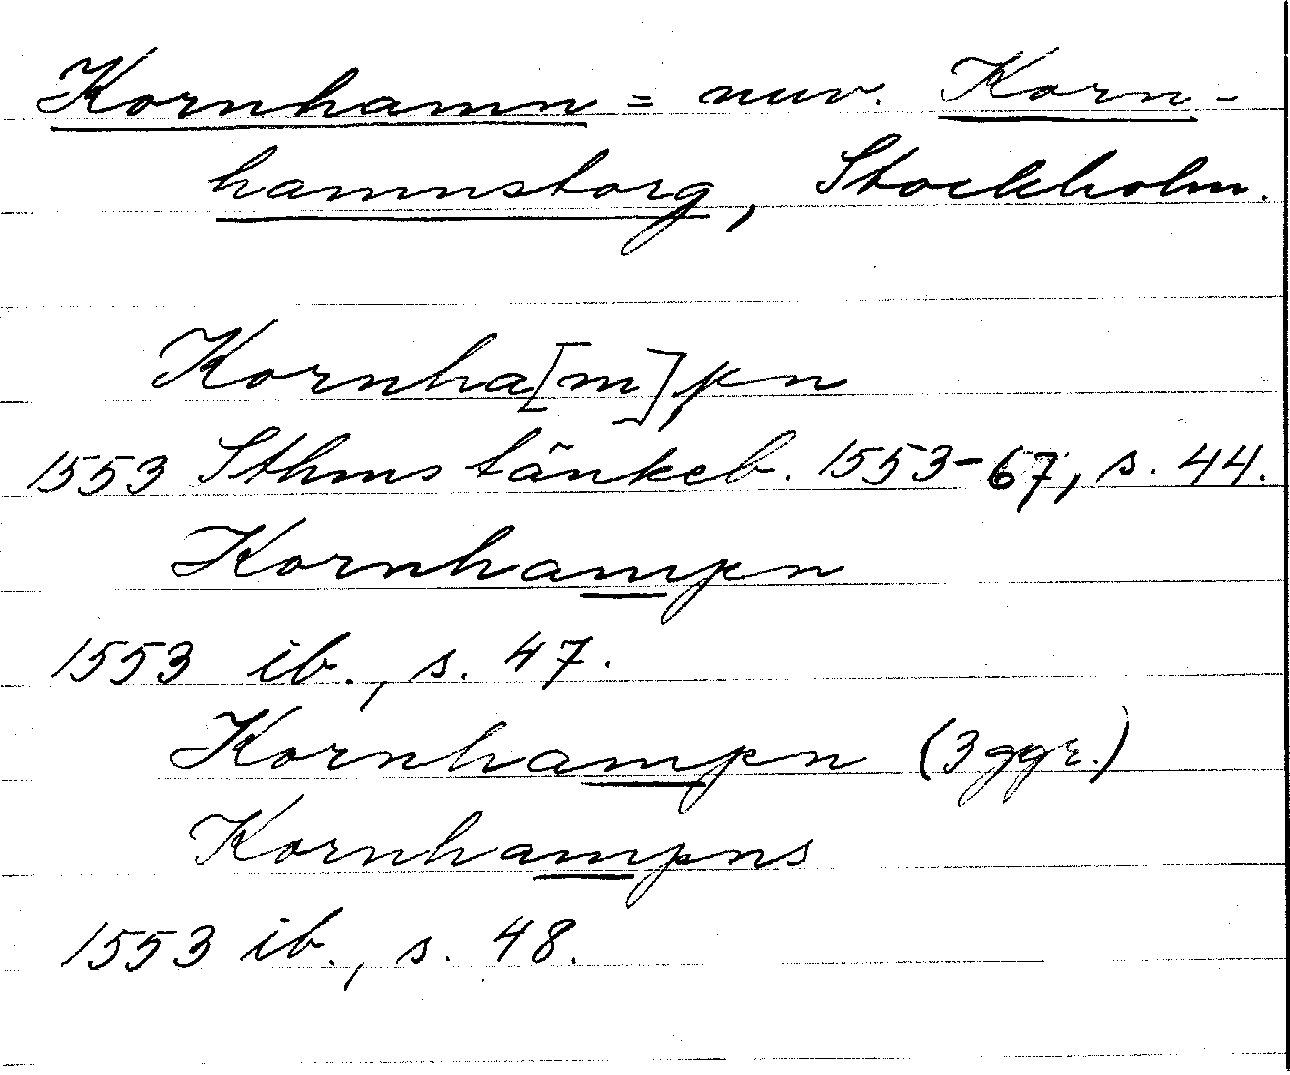 Kornhamn = nuv. Korn-
hamnstorg, Stockholm.
Kornha[m]pn
1553 Sthms tänkeb. 1553-67, s. 44.
Kornhampn
1553 ib., s. 47.
Kornhampn (3 ggr.)
Kornhampns
1553 ib., s. 48.